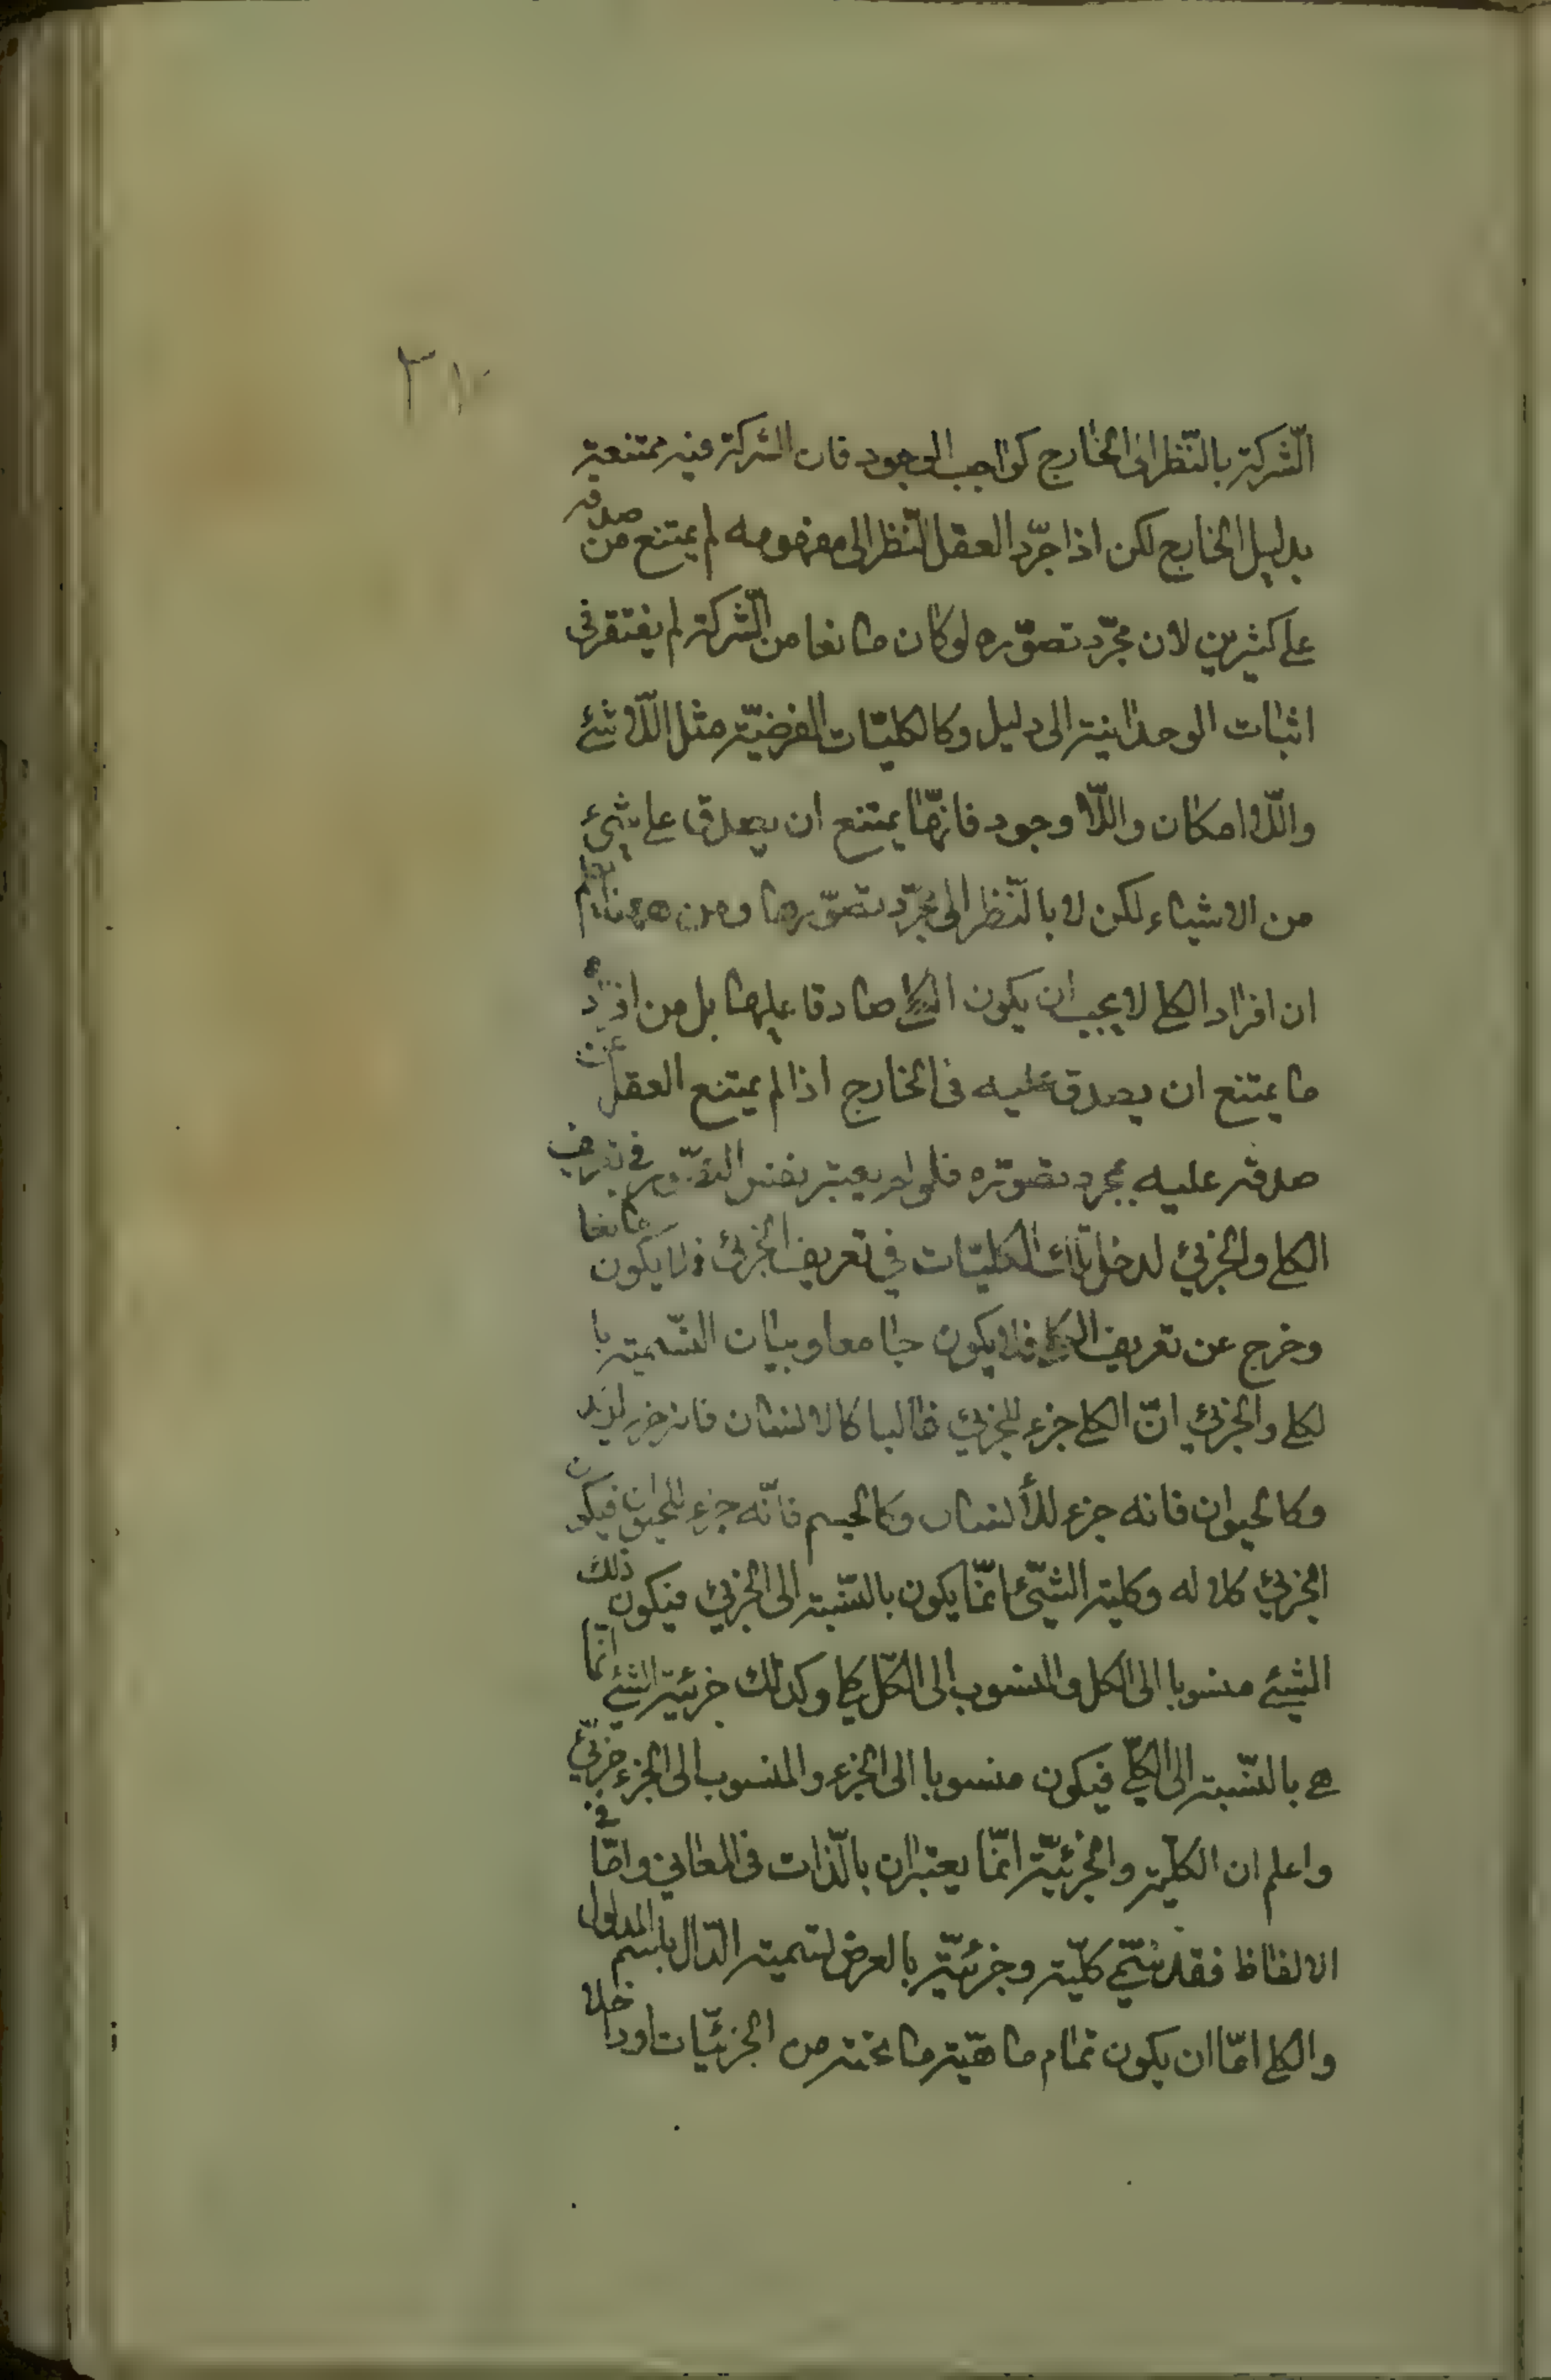 ٣١
الشّركة بالنّظر الى الخارج كواجب الوجود فان الشركة فيه ممتنعة
بدليل الخارج لكن اذا جرّد العقل النّظر الى مفهومه لم يمتنع من صدقه
على كثيرين لان مجرّد تصوّره لو كان مانعا من الشّركة لم يفتقر فى
اثبات الوحدانية الى دليل وكالكليّات الفرضيّة مثل اللّا شئ
واللّا امكان واللّا وجود فانهّا يمتنع ان يصدق على شئ
من الاشياء لكن لا بالنّظر الى مجرّد تصوّرها ومن ههنا يعلم
ان افراد الكلى لا يجب ان يكون الكلى صادقا عليها بل من افراده
ما يمتنع ان يصدق عليه فى الخارج اذا لم يمتنع العقل عن
صدقه عليه بمجرد تصوّره فلو لم يعتبر نفس التصّور فى تعريف
الكلى والجزئي لدخل تلك الكليّات في تعريف الجزئ فلا يكون مانعا
وخرج عن تعريف الكلى فلا يكون جامعا وبيان التّسمية با
لكلى والجزئي انّ الكلى جزء للجزئي غالبا كالانسان فانه جزء لزيد
وكالحيوان فانه جزء للأنسان وكالجسم فانّه جزء للحيوان فيكون
الجزئي كلا له وكلية الشّئ انمّا يكون بالنّسبة الى الجزئي فيكون ذلك
الشئ منسوبا الى الكل والمنسوب الى الكّل كلى وكذلك جزئية الشئ انمّا
هى بالنّسبة الى الكلّى فيكون منسوبا الى الجزء والمنسوب الى الجزء جزئّي
واعلم ان الكليّة والجزئيّة انمّا يعتبران بالّذات فى المعاني وامّا فى
الالفاظ فقد تسّمى كليّة وجزئيّة بالعرض لتسمية الدّال باسم المدلول
والكلى امّا ان يكون تمام ماهيّة ما تحته من الجزئيّات او داخلا